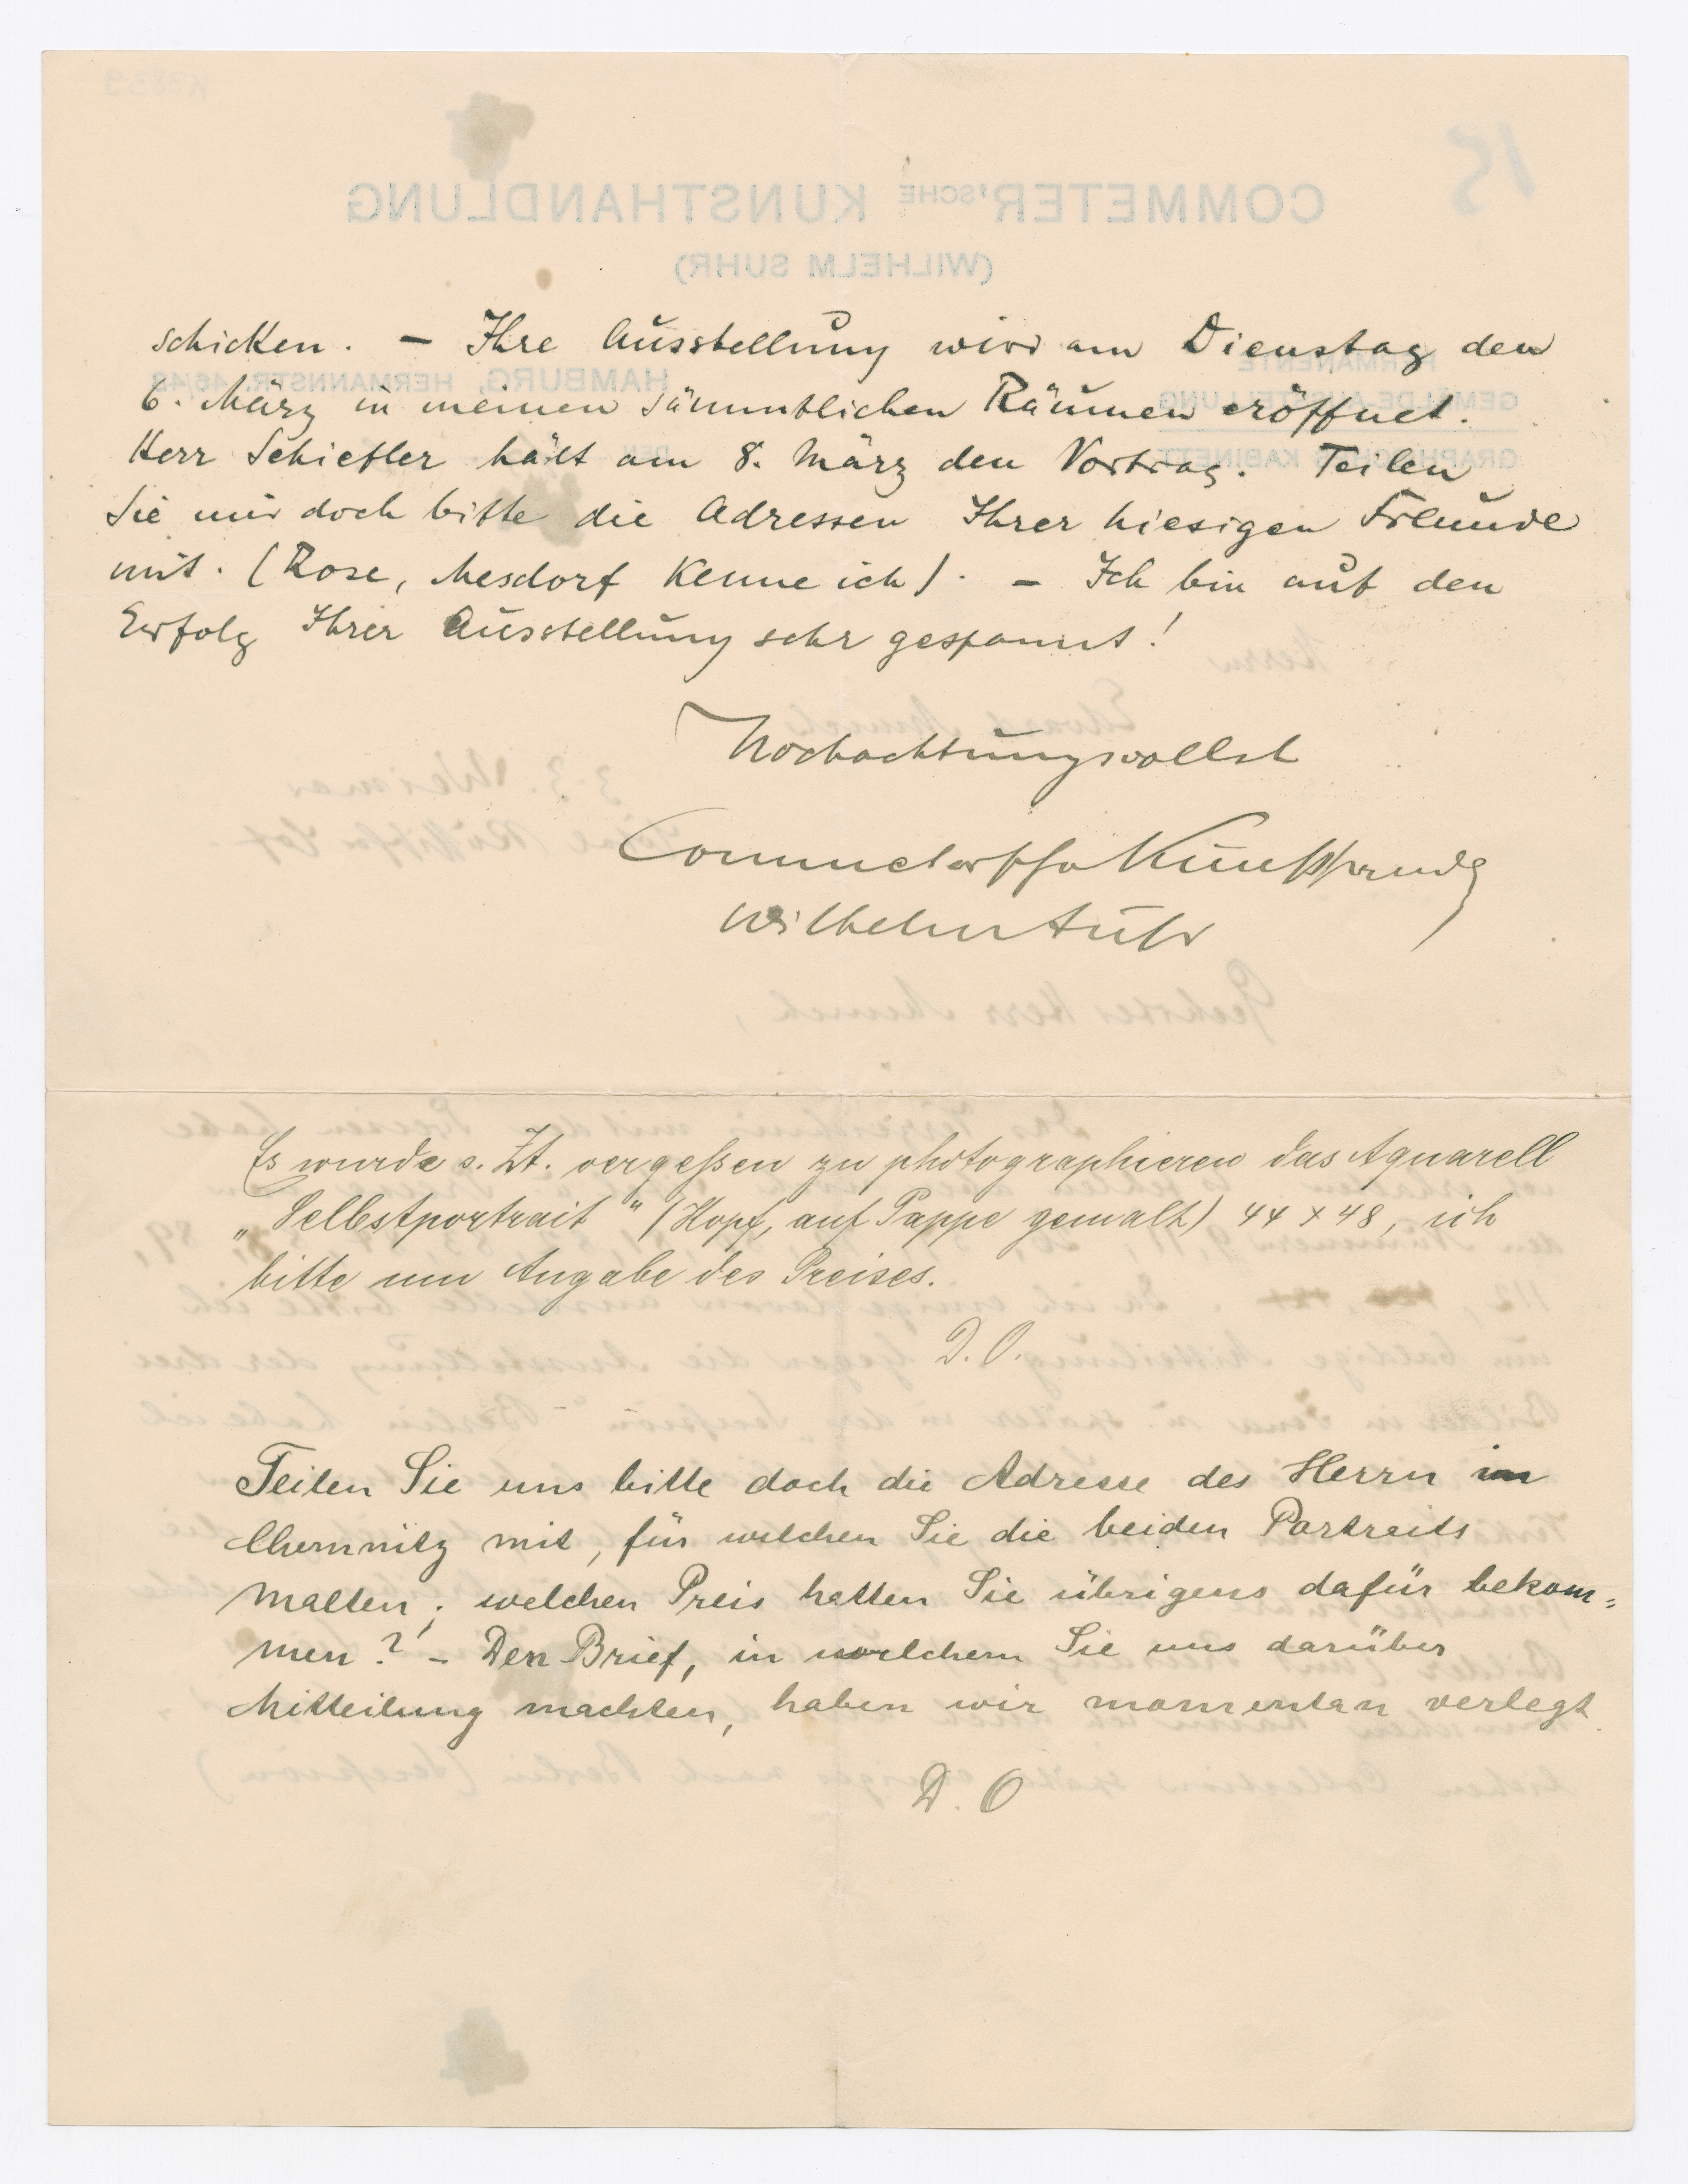 schicken. – Ihre Ausstellung wird am Dienstag den
6. März in meinen sämmtlichen Räumen eröffnet.
Herr Schiefler hält am 8. März den Vortrag. Teilen
Sie mir doch bitte die Adressen Ihrer hiesigen Freunde
mit. (Rose, Mesdorf kenne ich). – Ich bin auf den
Erfolg Ihrer Ausstellung sehr gespannt!
Hochachtungsvollst
Commetersche Kunsthandlg
Wilhelm Suhr
Es wurde s. Zt. vergeßen zu photographieren das Aquarell
„Selbstportrait" (Kopf, auf Pappe gemalt) 44 x 48, ich
bitte um Angabe des Preises.
D. O.
Teilen Sie uns bitte doch die Adresse des Herrn in
Chemnitz mit, für welchen Sie die beiden Portraits
malten; welchen Preis hatten Sie übrigens dafür bekom=
men? – Den Brief, in welchem Sie uns darüber
Mitteilung machten, haben wir momentan verlegt.
D. O